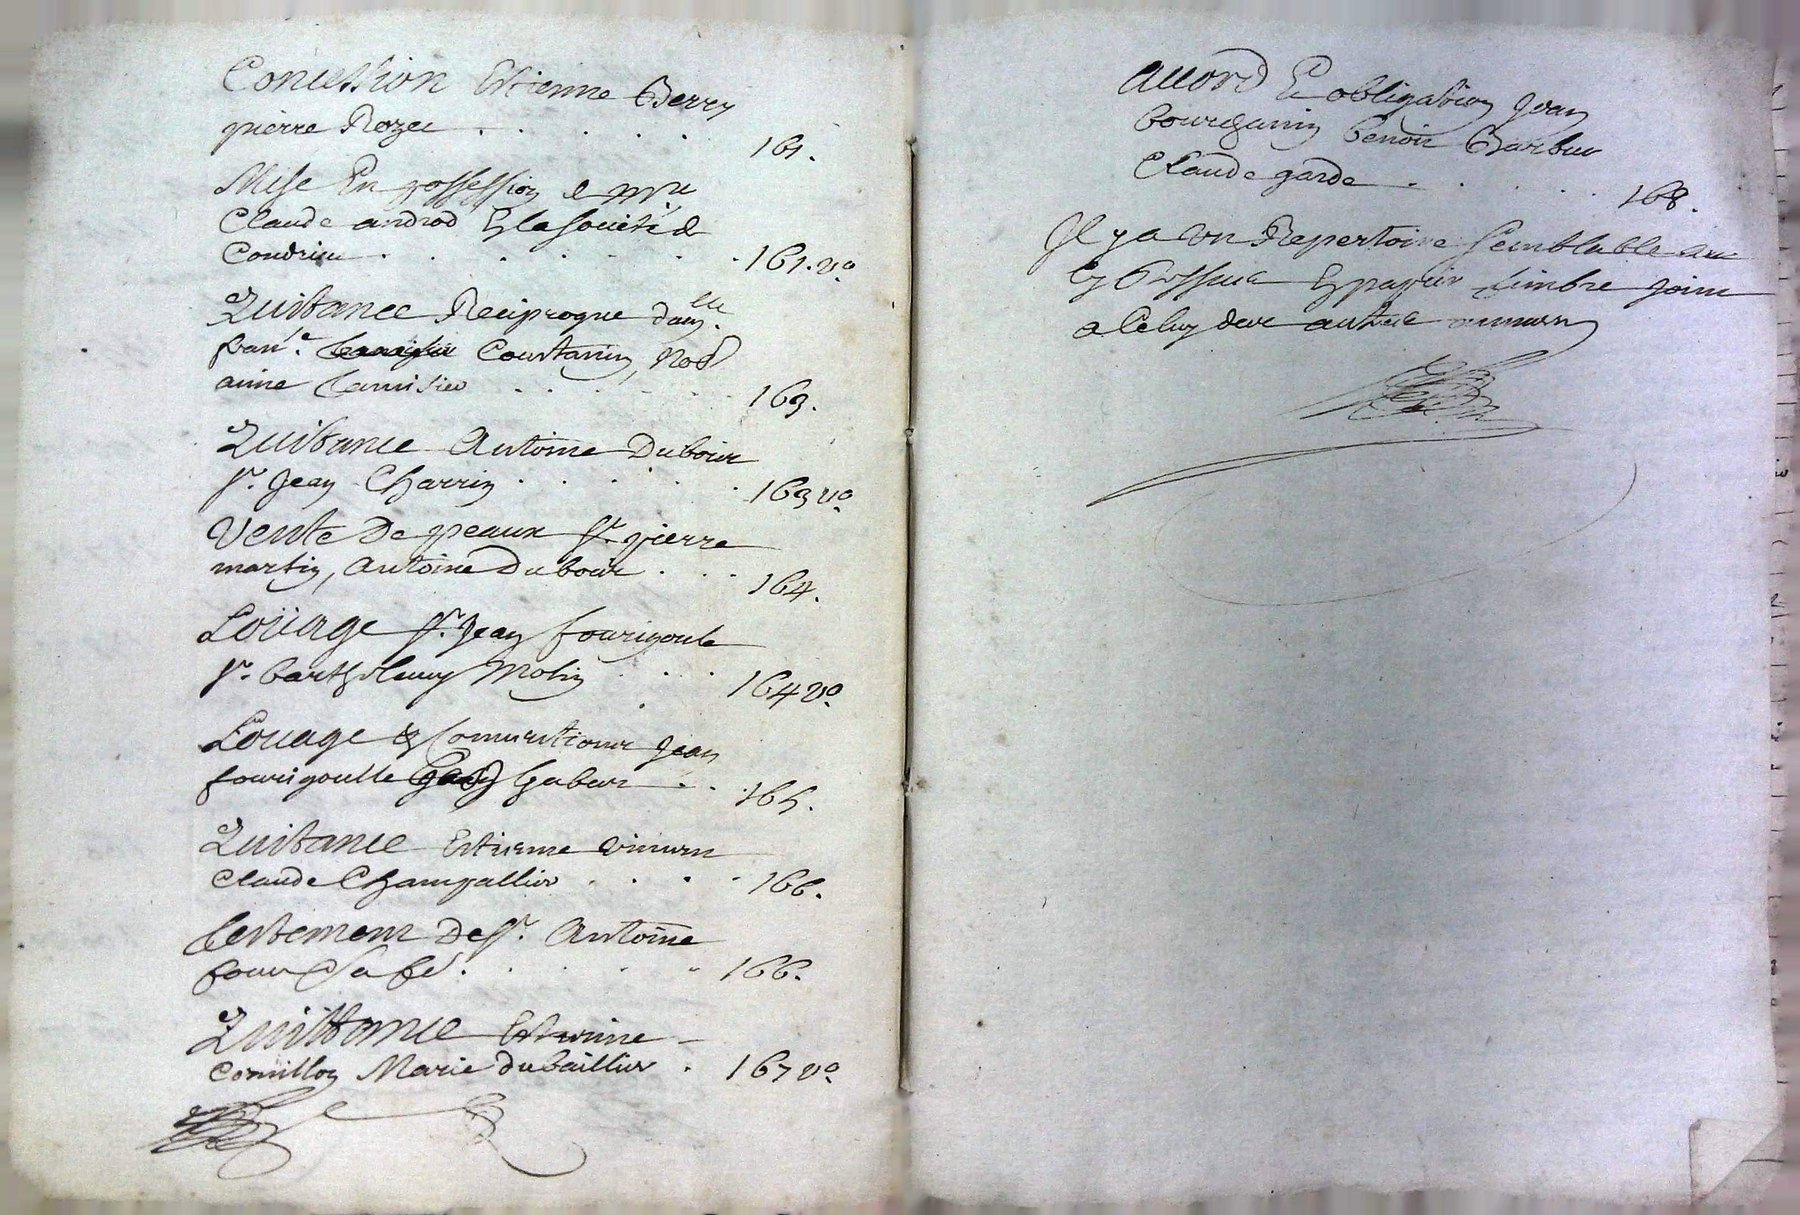 Concession Estienne Berry
pierre Rozec . . . . . 161.
Mise En possession de Mre
Claude androd & la société de
Condrieu . . . . . . . 161. vo
Quitance Reciproque dam.lle
fran.e Courtanin, Nod
anne Camisieu . . . . . . 163.
Quitance Antoine Dubouis
sr. Jean Charrin . . . . . 163 vo
Vente De peaux sr. pierre
martin, Antoine Dubouis . . . 164.
Loüage sr. Jean fourigoule
sr. barthelemy Molin . . . . 164 vo
Louage & Conventions Jean
fourigoulle . . 165.
Quitance Estienne
Claude Champallier . . . . 166.
testement De sr. Antoine
. . . . . 166.
Quittance Estienne
Cornillon Marie dubaillier . 167 vo
Accord & obligation Jean
benoit Barbier
Claude garde . . . . . 168.
Il y a un Repertoire Semblable au
& papier timbre joint
a Celuy des autres